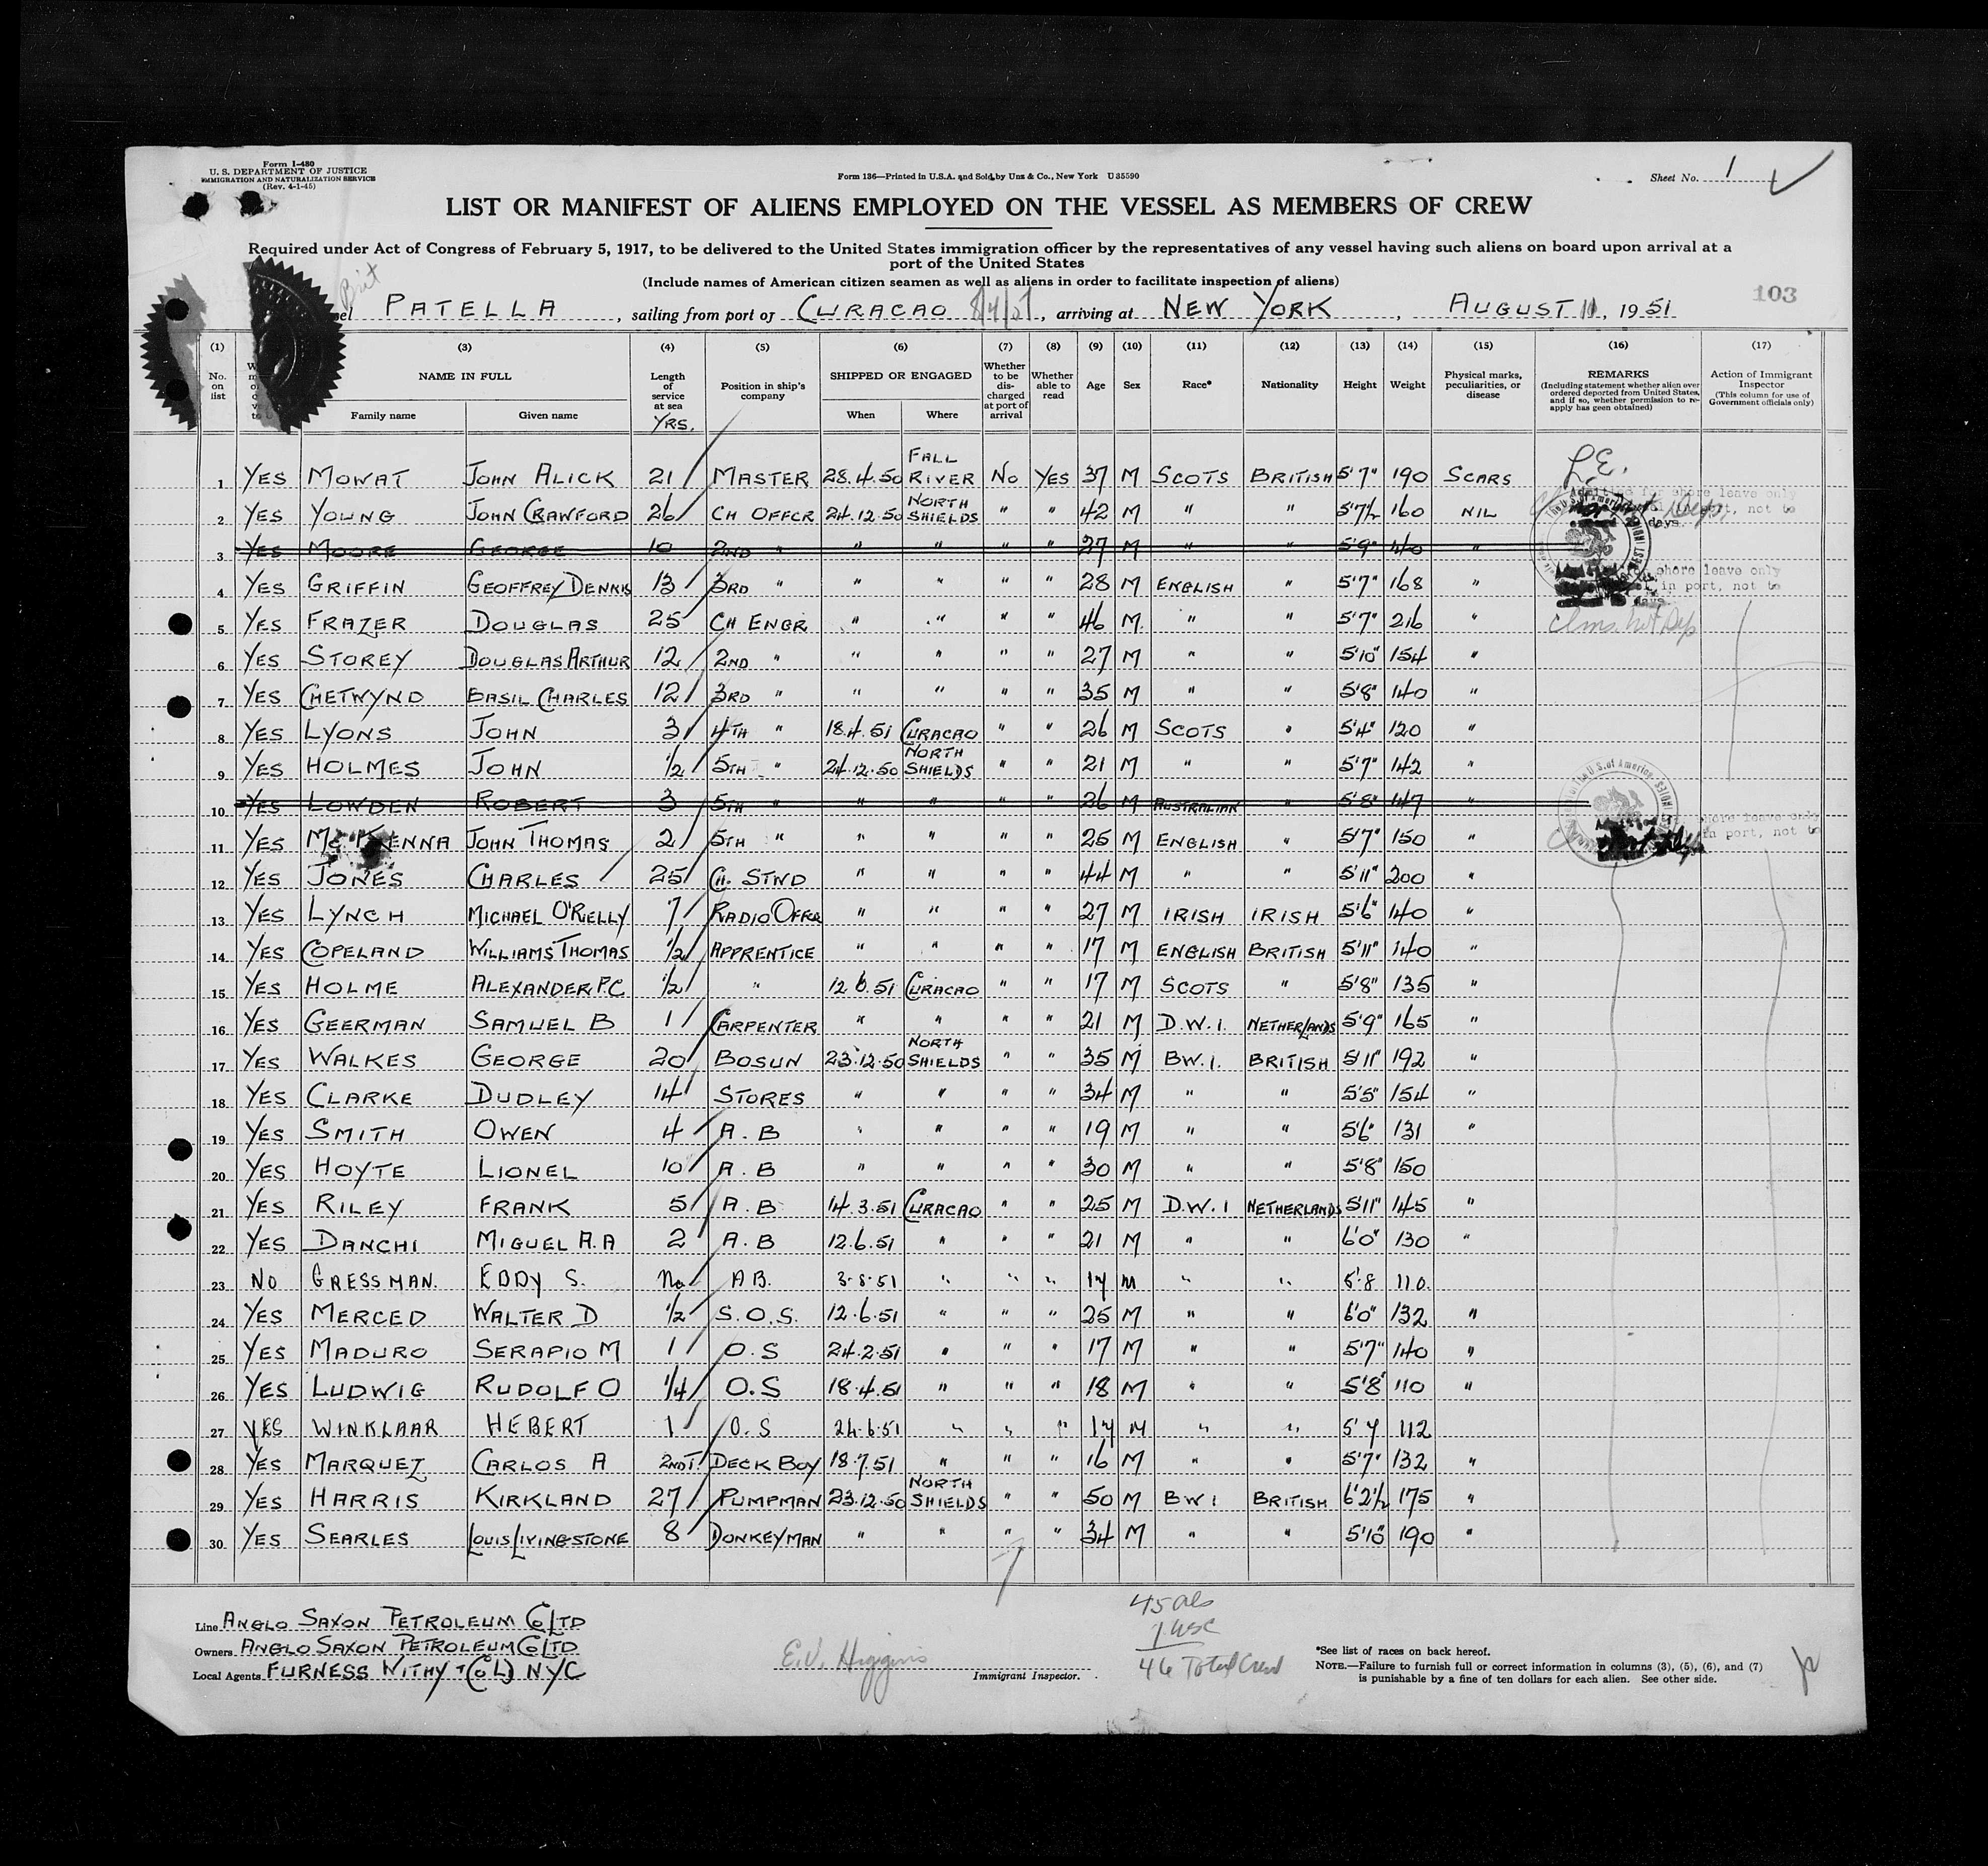 Form I-480
U. S. DEPARTMENT OF JUSTICE
IMMIGRATION AND NATURALIZATION SERVICE
(Rev. 4-1-45)
Form 136—Printed in U.S.A. and Sold by Unz & Co., New York U 35590
Sheet No. 1
LIST OR MANIFEST OF ALIENS EMPLOYED ON THE VESSEL AS MEMBERS OF CREW
Required under Act of Congress of February 5, 1917, to be delivered to the United States immigration officer by the representatives of any vessel having such aliens on board upon arrival at a
port of the United States
(Include names of American citizen seamen as well as aliens in order to facilitate inspection of aliens)
Brit
103
PATELLA, sailing from port of CURACAO 8/4/51, arriving at NEW YORK, AUGUST 11, 1951
(1) (3) (4) (5) (6) (7) (8) (9) (10) (11) (12) (13) (14) (15) (16) (17)
No. on list NAME IN FULL Family name Given name Length of service at sea YRS. Position in ship's company SHIPPED OR ENGAGED When Where Whether to be discharged at port of arrival Whether able to read Age Sex Race* Nationality Height Weight Physical marks, peculiarities, or disease REMARKS (Including statement whether alien ever ordered deported from United States, and if so, whether permission to re-apply has geen obtained) Action of Immigrant Inspector (This column for use of Government officials only)
1 YES MOWAT JOHN ALICK 21 MASTER 28.4.50 FALL RIVER NO YES 37 M SCOTS BRITISH 5'7" 190 SCARS
2 YES YOUNG JOHN CRAWFORD 26 CH OFFCR 24.12.50 NORTH SHIELDS " " 42 M " " 5'7½ 160 NIL
3 YES MOORE GEORGE 10 2ND " " " " " 27 M " " 5'9" 140 "
4 YES GRIFFIN GEOFFREY DENNIS 13 3RD " " " " " 28 M ENGLISH " 5'7" 168 "
5 YES FRAZER DOUGLAS 25 CH ENGR " " " " 46 M " " 5'7" 216 "
6 YES STOREY DOUGLAS ARTHUR 12 2ND " " " " " 27 M " " 5'10" 154 "
7 YES CHETWYND BASIL CHARLES 12 3RD " " " " " 35 M " " 5'8" 140 "
8 YES LYONS JOHN 3 4TH " 18.4.51 CURACAO " " 26 M SCOTS " 5'4" 120 "
9 YES HOLMES JOHN ½ 5TH " 24.12.50 NORTH SHIELDS " " 21 M " " 5'7" 142 "
10 YES LOWDEN ROBERT 3 5TH " " " " " 26 M AUSTRALIAN " 5'8" 147 "
11 YES McKENNA JOHN THOMAS 2 5TH " " " " " 25 M ENGLISH " 5'7" 150 "
12 YES JONES CHARLES 25 CH. STWD " " " " 44 M " " 5'11" 200 "
13 YES LYNCH MICHAEL O'RIELLY 7 RADIO OFFCR " " " " 27 M IRISH IRISH 5'6" 140 "
14 YES COPELAND WILLIAMS THOMAS ½ APPRENTICE " " " " 17 M ENGLISH BRITISH 5'11" 140 "
15 YES HOLME ALEXANDER P.C ½ " 12.6.51 CURACAO " " 17 M SCOTS " 5'8" 135 "
16 YES GEERMAN SAMUEL B 1 CARPENTER " " " " 21 M D.W.I. NETHERLANDS 5'9" 165 "
17 YES WALKES GEORGE 20 BOSUN 23.12.50 NORTH SHIELDS " " 35 M BW.I. BRITISH 5'11" 192 "
18 YES CLARKE DUDLEY 14 STORES " " " " 34 M " " 5'5" 154 "
19 YES SMITH OWEN 4 A.B " " " " 19 M " " 5'6" 131 "
20 YES HOYTE LIONEL 10 A.B " " " " 30 M " " 5'8" 150
21 YES RILEY FRANK 5 A.B 14.3.51 CURACAO " " 25 M D.W.I NETHERLANDS 5'11" 145 "
22 YES DANCHI MIGUEL A.A 2 A.B 12.6.51 " " " 21 M " " 6'0" 130 "
23 NO GRESSMAN. EDDY S. AB. 3.8.51 " " " 17 M " " 5'8 110.
24 YES MERCED WALTER D ½ S.O.S. 12.6.51 " " " 25 M " " 6'0" 132 "
25 YES MADURO SERAPIO M 1 O.S 24.2.51 " " " 17 M " " 5'7" 140 "
26 YES LUDWIG RUDOLF O ¼ O.S 18.4.51 " " " 18 M " " 5'8" 110 "
27 YES WINKLAAR HEBERT 1 O.S 24.6.51 " " " 17 M " " 5'7 112
28 YES MARQUEZ CARLOS A DECK BOY 18.7.51 " " " 16 M " " 5'7" 132 "
29 YES HARRIS KIRKLAND 27 PUMPMAN 23.12.50 NORTH SHIELDS " " 50 M BWI BRITISH 6'2½ 175 "
30 YES SEARLES LOUIS LIVINGSTONE 8 DONKEYMAN " " " " 34 M " " 5'10" 190 "
Line ANGLO SAXON PETROLEUM Co LTD
Owners ANGLO SAXON PETROLEUM Co LTD
Local Agents FURNESS WITHY + (Co L) NYC
E.V. Higgins
Immigrant Inspector.
45 als
1 usc
46 Total Crew
*See list of races on back hereof.
NOTE.—Failure to furnish full or correct information in columns (3), (5), (6), and (7)
is punishable by a fine of ten dollars for each alien. See other side.